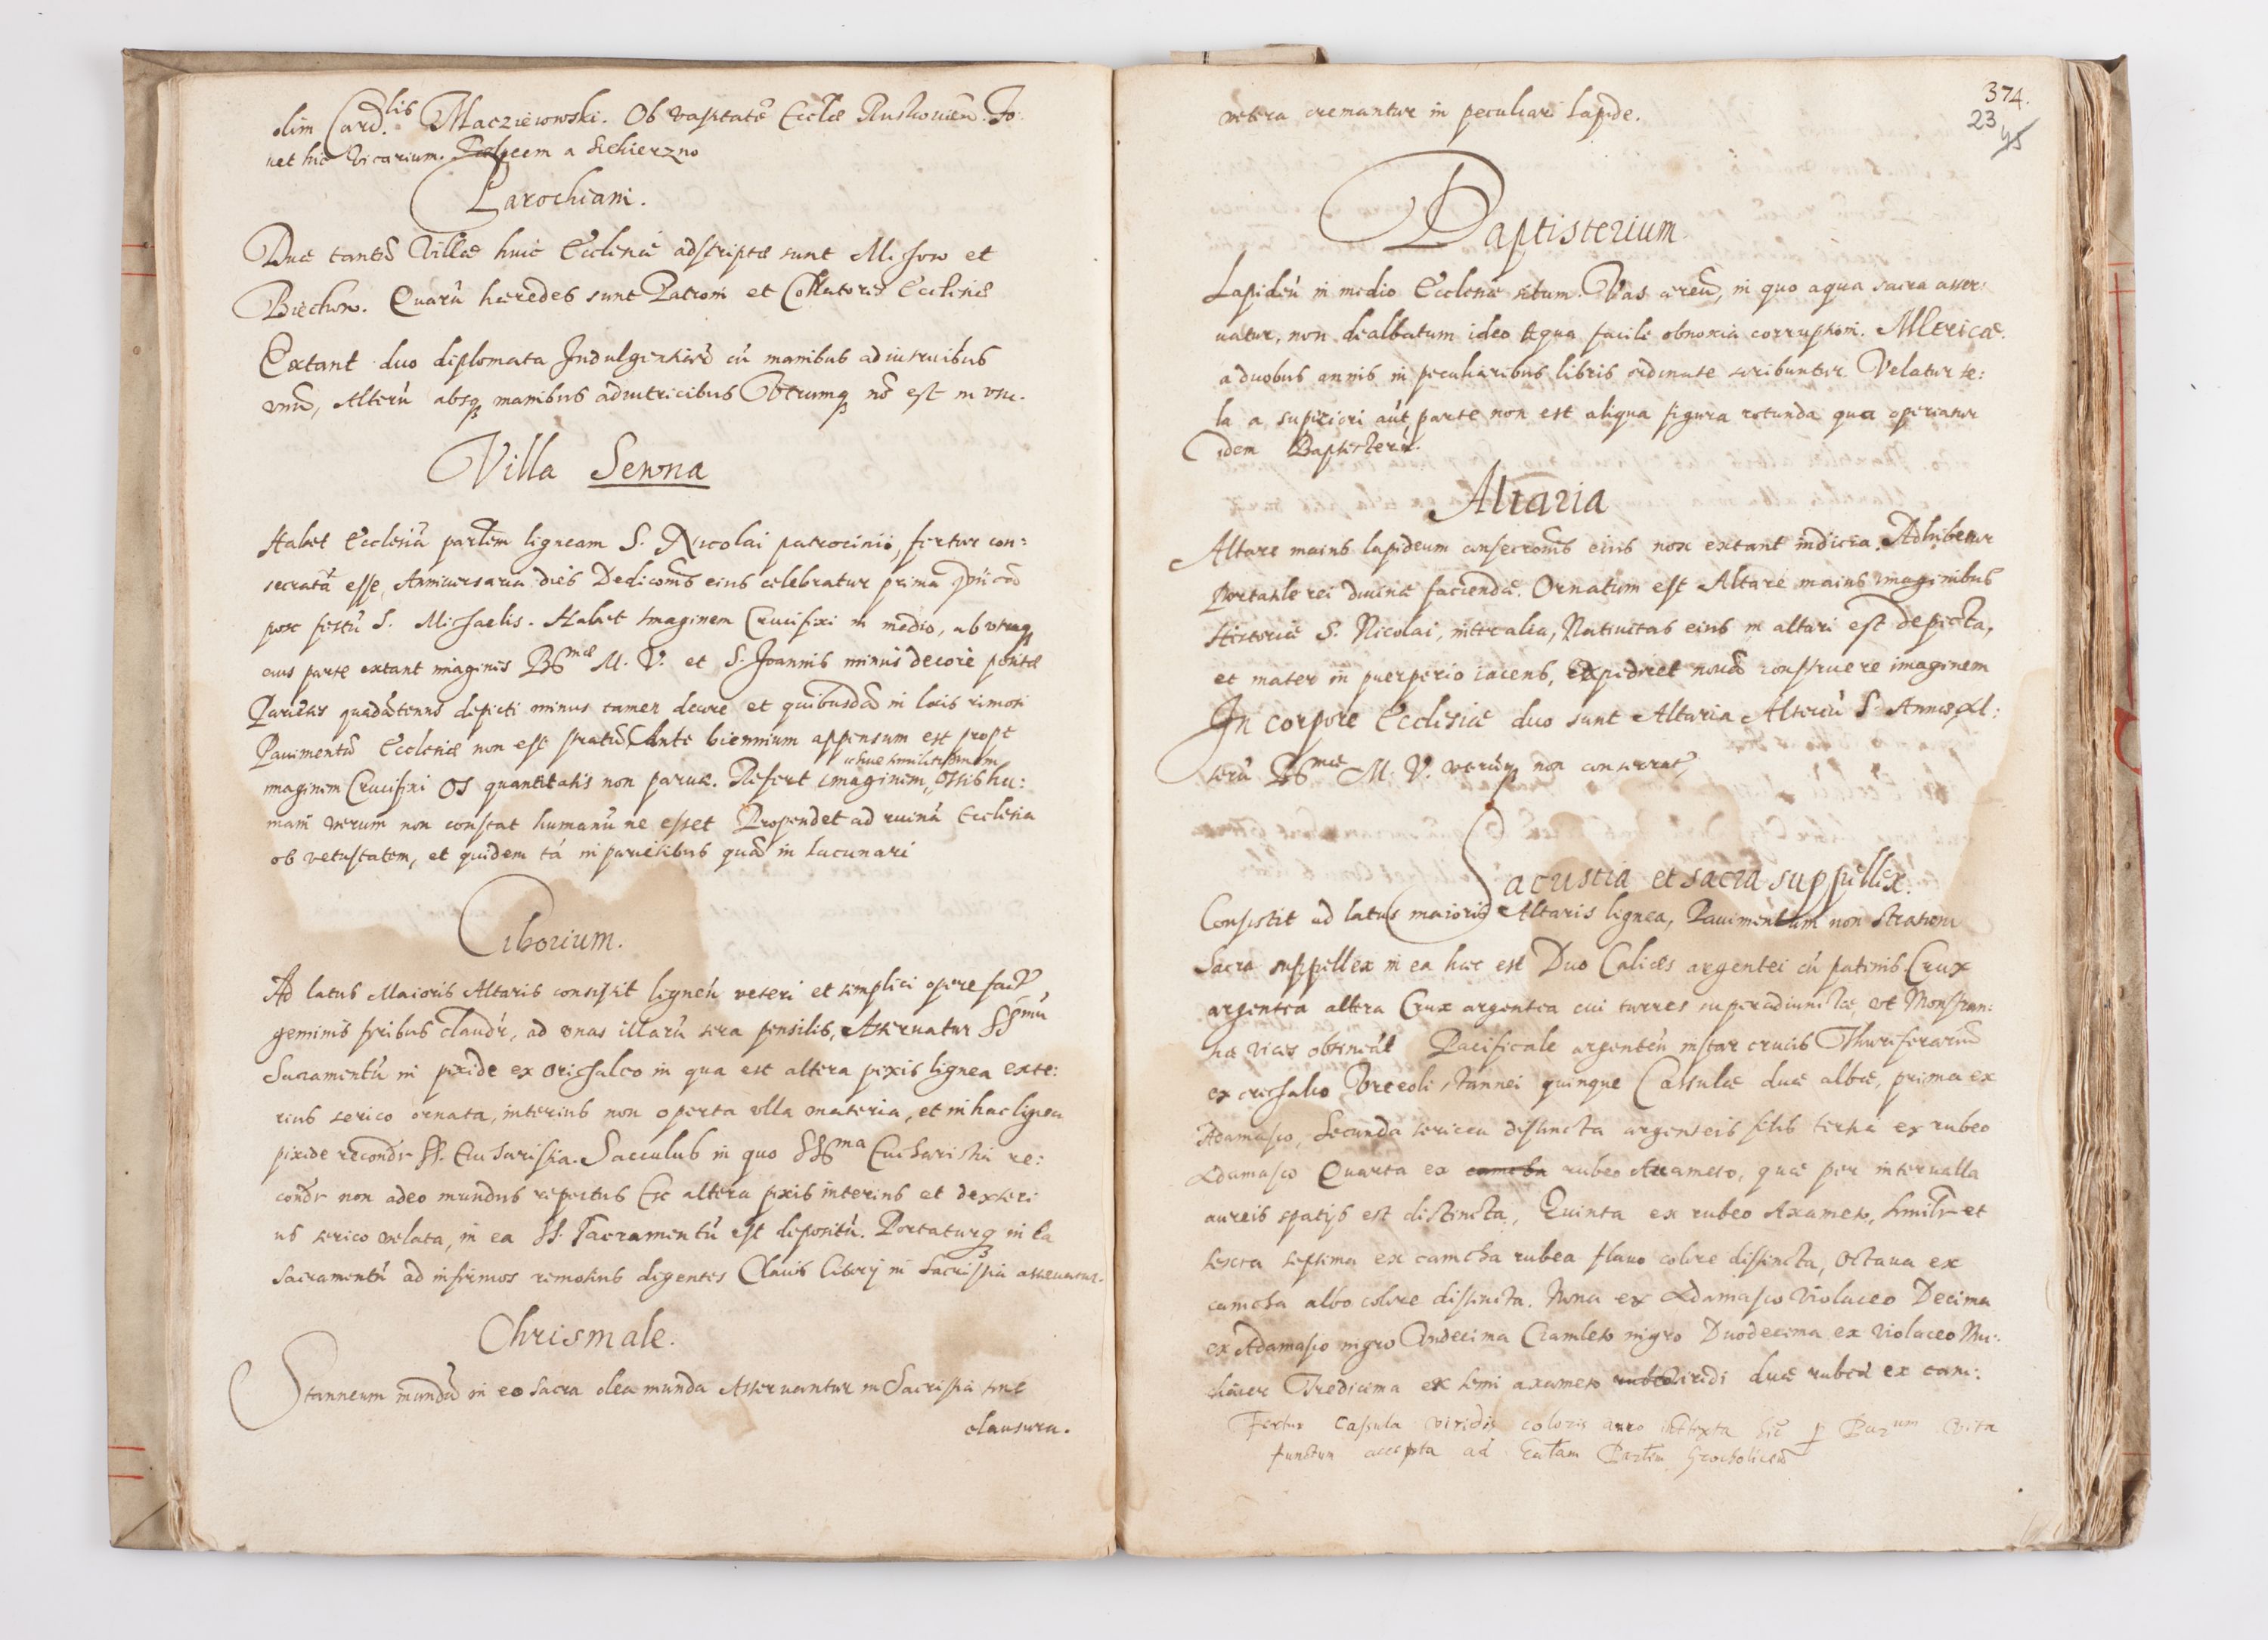 olim Card.lis Maczieiowski. Ob vastitatē Eccłæ Ruskouien. Fo:
uet hic Vicarium. a Sichierzno
Parochiani.
Duæ tantū Villæ huic Ecclesiæ adscriptæ sunt Missow et
Biechow. Quarū hæredes sunt Patroni et Collatores Ecclesiæ
Extant duo diplomata Indulgentiarū cū manibus adiutricibus
vnū, Alterū absq manibus adiutricibus Vtrumq nō est in vsu.
Villa Sewna
Habet Ecclesiā partem ligneam S. Nicolai patrocinio, fertur con:
secratā esse, Anniuersaria dies Dedicaonis eius celebratur prima
post festū S. Michaelis. Habet Imaginem Crucifixi in medio, ab vtraq
eius parte extant imagines Bmæ M. V. et S. Joannis minus decore
Parietes quadātenus depicti minus tamen decore et quibusdā in locis rimosi
Pauimentū Ecclesiæ non est stratū, Ante biennium appensum est prope
imaginem Crucifixi Os quantitatis non paruæ. Refert imaginem, ossis hu:
mani verum non constat humanū ne esset Propendet ad ruinā Ecclesia
ob vetustatem, et quidem tā in parietibus quā in lacunari
Ciborium.
Ad latus Maioris Altaris consistit ligneū veteri et simplici opere
geminis foribus claudr, ad vnas illarū sera pensilis, Asseruatur SSmū
Sacramentū in pixide ex orichalco in qua est altera pixis lignea exte:
rius serico ornata, interius non operta vlla materia, et in hac lignea
pixide recondr SS. Eucharistia. Sacculus in quo SSma Eucharistia re:
condr non adeo mundus repertus Est altera pixis interius et exteri
us serico velata, in ea SS. Sacramentū est depositū. Portaturq in ea
Sacramentū ad infirmos remotius degentes Clauis Ciborij in Sacristia asseruatur.
Chrismale.
Stanneum mundū in eo sacra olea munda Asseruantur in Sacristia sine
clausura.
374.
23
45
vetera cremantur in peculiari lapide.
Baptisterium.
Lapideū in medio Ecclesiæ situm. Vas æreū, in quo aqua sacra asser:
uatur, non dealbatum ideo aqua facile obnoxia corruptioni. Metricæ.
a duobus annis in peculiaribus libris ordinate scribuntur. Velatur te:
la a superiori aūt parte non est aliqua figura rotunda qua operiatur
idem Baptisteriū.
Altaria
Altare maius lapideum consecraonis eius non extant indicia. Adhibetur
Portatile rei diuinæ faciendæ. Ornatum est Altare maius imaginibus
Historiæ S. Nicolai, inter alia, Natiuitas eius in altari est depicta,
et mater in puerperio iacens, Expediret nouā construere imaginem
In corpore Ecclesiæ duo sunt Altaria Alterū S. Annæ Al:
terū Bmæ M. V. vtrūq non consecrat
Sacristia et sacra suppellex.
Consistit ad latus maioris Altaris lignea, Pauimentum non stratum
Sacra suppellex in ea hæc est Duo Calices argentei cū patinis. Crux
argentea altera Crux argentea cui turres superadiunctæ, vt Monstran:
tiæ vices obtineāt Pacificale argenteū instar crucis Thuriferariū
ex orichalco Vrceoli stannei quinque Cassulæ duæ albæ, prima ex
Adamasco, Secunda sericea distincta argenteis filis tertia ex rubeo
Adamasco Quarta ex camcha rubeo Axameto, quæ per interualla
aureis spatijs est distincta, Quinta ex rubeo Axameto, similr et
sexta septima ex camcha rubea flauo colore distincta, Octaua ex
camcha albo colore distincta. Nona ex Adamasco Violaceo Decima
ex Adamasco nigro Vndecima Ciamleto nigro Duodecima ex violaceo Mu:
Tredicima ex semi axameto viridi duæ rubeæ ex cam:
Fertur Casula viridis coloris auro intexta hic p vita
functum accepta ad